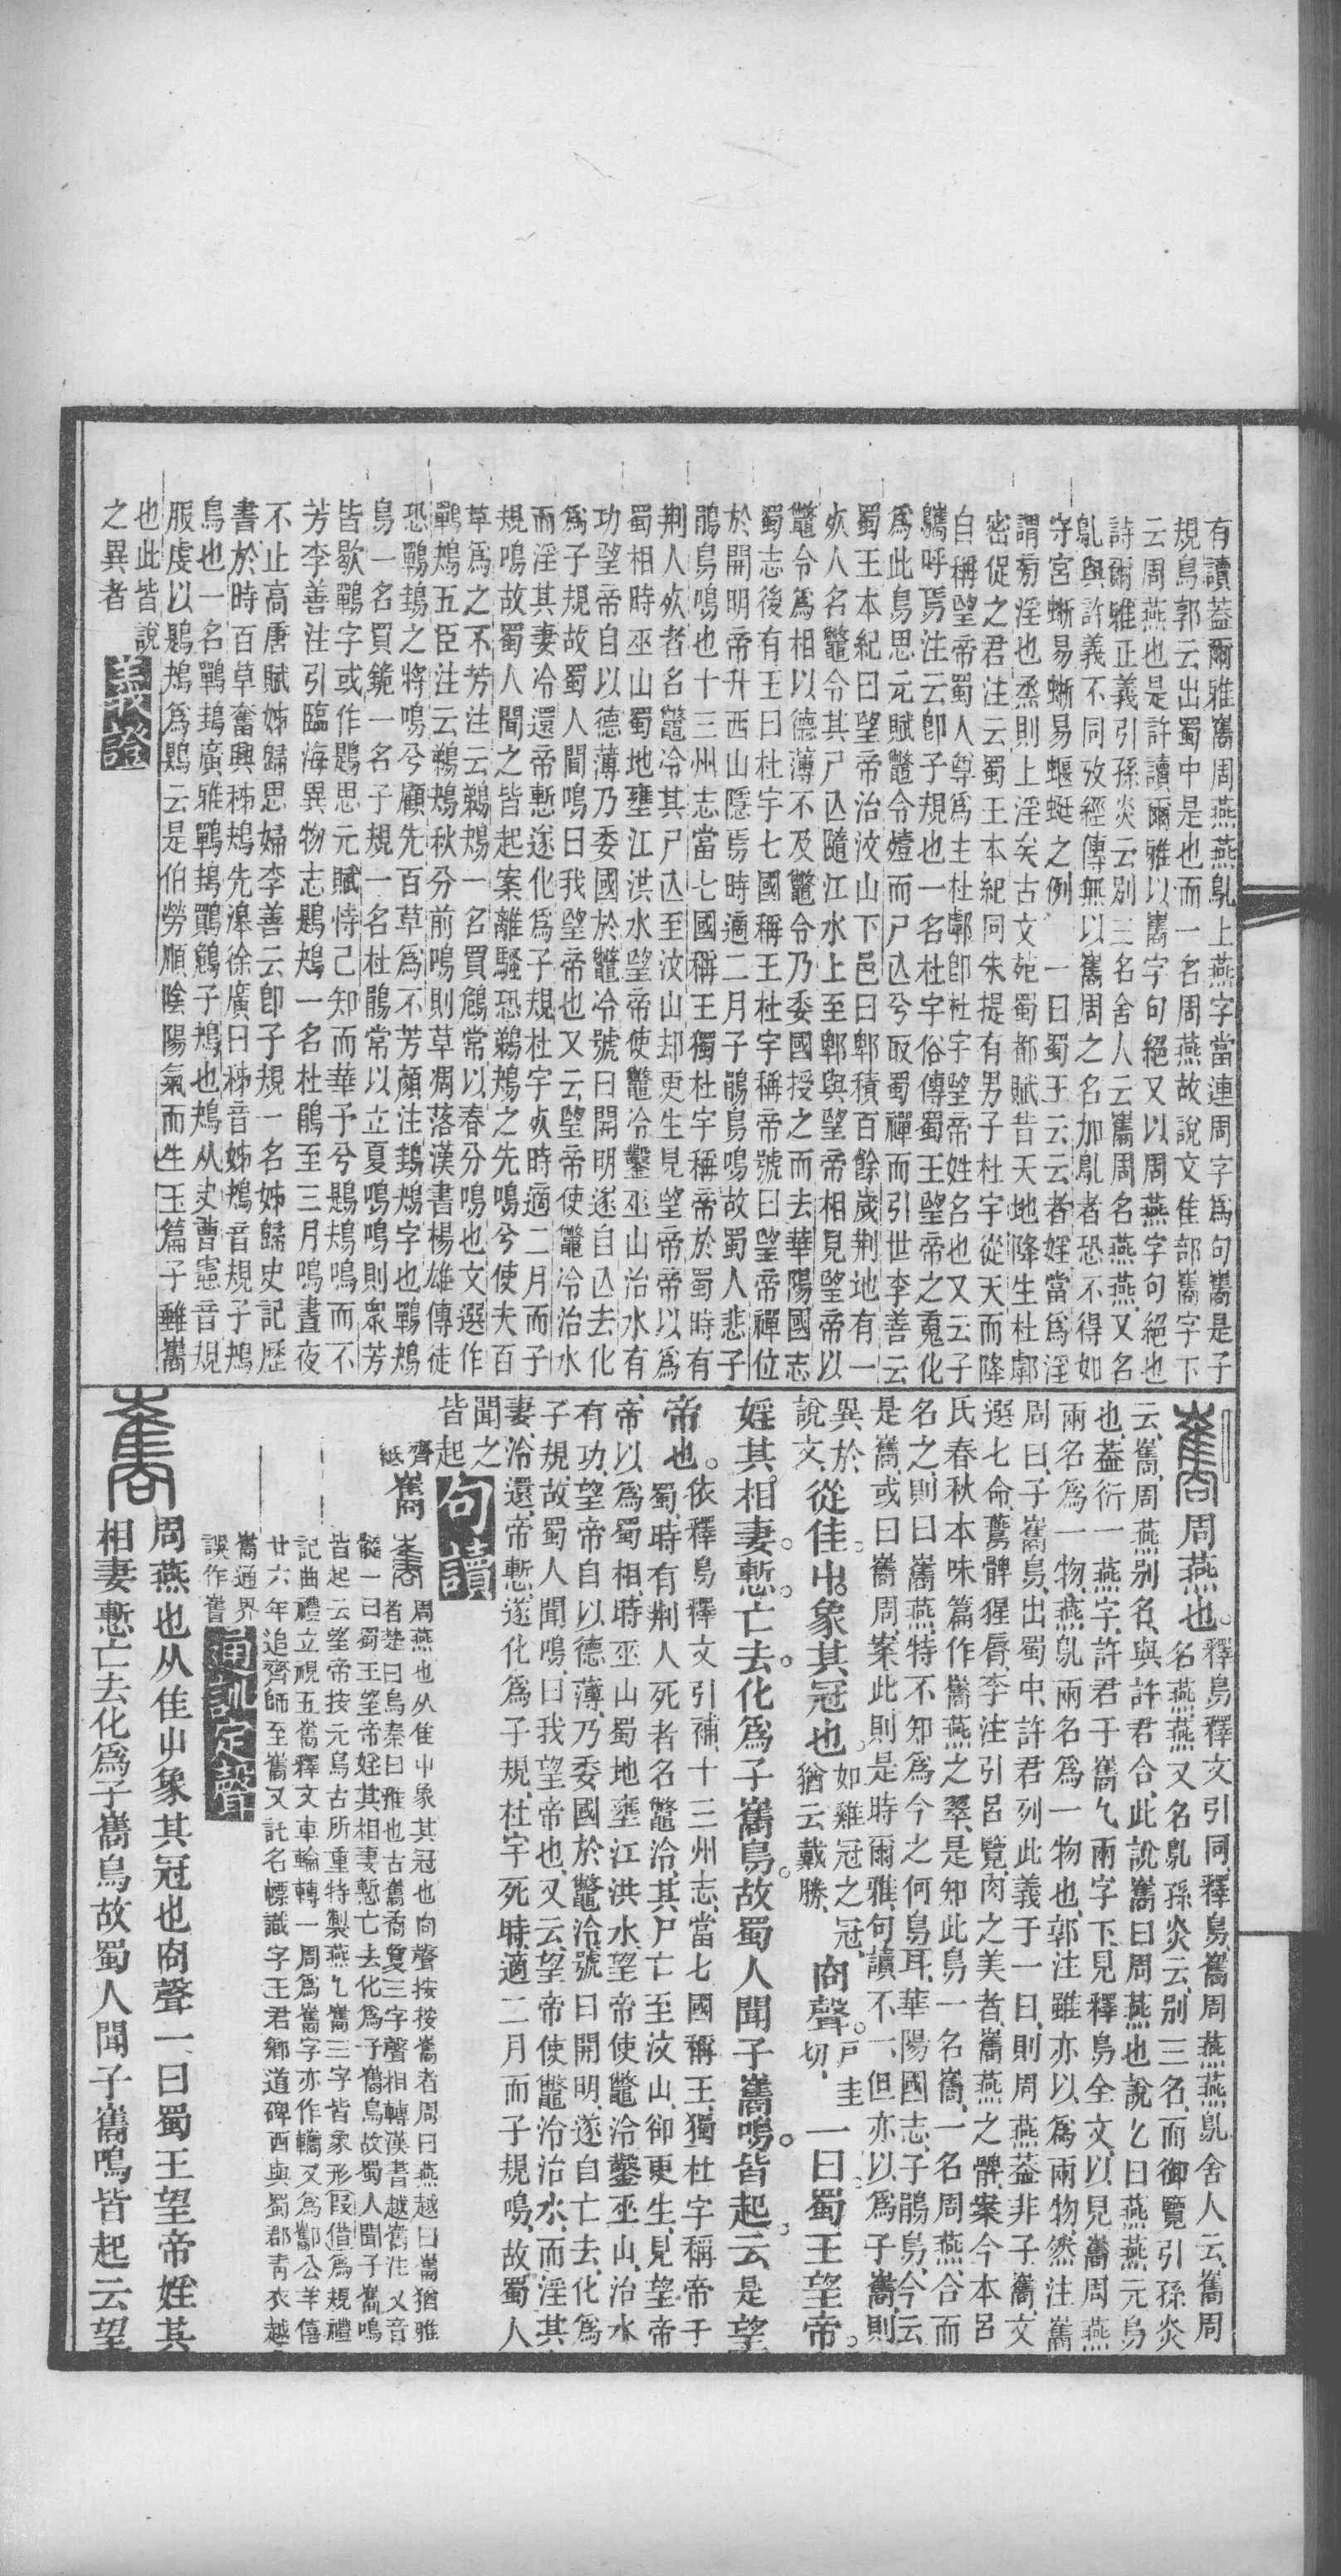 有讀葢爾雅巂周燕燕鳦上燕字當連周字爲句巂是子
規鳥郭云出蜀中是也而一名周燕故說文隹部巂字下
云周燕也是許讀爾雅以巂字句絕又以周燕字句絕也
詩爾雅正義引孫炎云別三名舍人云巂周名燕燕又名
鳦與許義不同攷經傳無以巂周之名加鳦者恐不得如
守宮蜥易蜥易蝘蜓之例 一曰蜀王云云者婬當爲淫
謂㫄淫也烝則上淫矣古文苑蜀都賦昔天地降生杜鄠
密促之君注云蜀王本紀同朱提有男子杜宇從天而降
自稱望帝蜀人尊爲主杜鄠卽杜宇望帝姓名也又云子
鵑呼焉注云卽子規也一名杜宇俗傳蜀王望帝之䰟化
爲此鳥思元賦鼈令殪而尸亾兮取蜀禪而引世李善云
蜀王本紀曰望帝治汶山下邑曰郫積百餘歲荆地有一
㱙人名鼈令其尸亾隨江水上至郫與望帝相見望帝以
鼈令爲相以德薄不及鼈令乃委國授之而去華陽國志
蜀志後有王曰杜宇七國稱王杜宇稱帝號曰望帝禪位
於開明帝升西山隱焉時適二月子鵑鳥鳴故蜀人悲子
鵑鳥鳴也十三州志當七國稱王獨杜宇稱帝於蜀時有
荆人㱙者名鼈冷其尸亾至汶山却更生見望帝帝以爲
蜀相時巫山蜀地壅江洪水望帝使鼈冷鑿巫山治水有
功望帝自以德薄乃委國於鼈冷號曰開明遂自亾去化
爲子規故蜀人聞鳴曰我望帝也又云望帝使鼈冷治水
而淫其妻冷還帝慙遂化爲子規杜宇㱙時適二月而子
規鳴故蜀人聞之皆起案離騷恐鵜鴂之先鳴兮使夫百
草爲之不芳注云鵜鴂一名買䳏常以春分鳴也文選作
鷤鴂五臣注云鷤鴂秋分前鳴則草凋落漢書楊雄傳徒
恐鷤䳏之將鳴兮顧先百草爲不芳顏注䳏鴂字也鷤鴂
鳥一名買鵤一名子規一名杜鵑常以立夏鳴鳴則衆芳
皆歇鷤字或作鶗思元賦恃己知而華予兮鶗鴂鳴而不
芳李善注引臨海異物志鶗鴂一名杜鵑至三月鳴晝夜
不止高唐賦姊歸思婦李善云卽子規一名姊歸史記歷
書於時百草奮興秭鴂先滜徐廣曰秭音姊鴂音規子鴂
鳥也一名鷤䳏廣雅鷤䳏鷶䳏子鴂也鴂从史曹憲音規
服虔以鶗鴂爲鶪云是伯勞順陰陽氣而生玉篇子雟巂
也此皆說
之異者
義證
巂 周燕也。釋鳥釋文引同釋鳥巂周燕燕鳦舍人云巂周
名燕燕又名鳦孫炎云別三名而御覽引孫炎
云巂周燕別名與許君合此說巂曰周燕也說乙曰燕燕元鳥
也葢衍一燕字許君于巂乙兩字下見釋鳥全文以見巂周燕
兩名爲一物燕鳦兩名爲一物也郭注雖亦以爲兩物然注巂
周曰子巂鳥出蜀中許君列此義于一曰則周燕葢非子巂文
選七命鷰髀猩脣李注引呂覽肉之美者巂燕之髀案今本呂
氏春秋本味篇作巂燕之翠是知此鳥一名巂一名周燕合而
名之則曰巂燕特不知爲今之何鳥耳華陽國志子鵑鳥今云
是巂或曰巂周案此則是時爾雅句讀不一但亦以爲子巂則
異於
說文
從隹屮。象其冠也。如雞冠之冠
猶云戴勝
㕯聲。戶圭
切
一曰蜀王望帝。
婬其相妻。慙。亡去。化爲子巂鳥。故蜀人聞子巂鳴。皆起。云是望
帝也。依釋鳥釋文引補十三州志當七國稱王獨杜宇稱帝于
蜀時有荆人死者名鼈泠其尸亡至汶山卻更生見望帝
帝以爲蜀相時巫山蜀地壅江洪水望帝使鼈泠鑿巫山治水
有功望帝自以德薄乃委國於鼈泠號曰開明遂自亡去化爲
子規故蜀人聞鳴曰我望帝也又云望帝使鼈泠治水而淫其
妻泠還帝慙遂化爲子規杜宇死時適二月而子規鳴故蜀人
聞之
皆起
句讀
齊
紙
巂
周燕也从隹屮象其冠也㕯聲按按巂者周曰燕越曰巂猶雅
者楚曰烏秦曰雅也古巂喬夐三字聲相轉漢書越巂注又音
髓一曰蜀王望帝婬其相妻慙亡去化爲子巂鳥故蜀人聞子巂鳴
皆起云望帝按元鳥古所重特製燕乙巂三字皆象形叚借爲規禮
記曲禮立視五巂釋文車輪轉一周爲巂字亦作轊又爲酅公羊僖
廿六年追齊師至巂又託名幖識字王君鄉道碑西與蜀郡靑衣越
巂通界
誤作嶲
通訓定聲
巂
周燕也从隹屮象其冠也㕯聲一曰蜀王望帝婬其
相妻慙亡去化爲子巂鳥故蜀人聞子巂鳴皆起云望